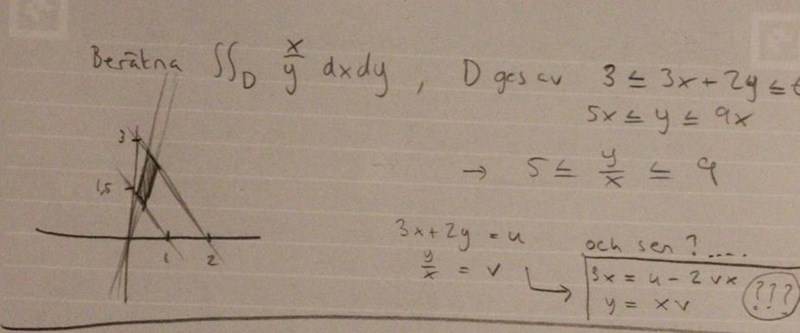 Beräkna ∬_D x/y dxdy , D ges av 3 ≤ 3x + 2y ≤ 6
5x ≤ y ≤ 9x
→ 5 ≤ y/x ≤ 9
3
1,5
1 2
3x + 2y = u
y/x = v
och sen ? .....
3x = u - 2vx
y = xv
???